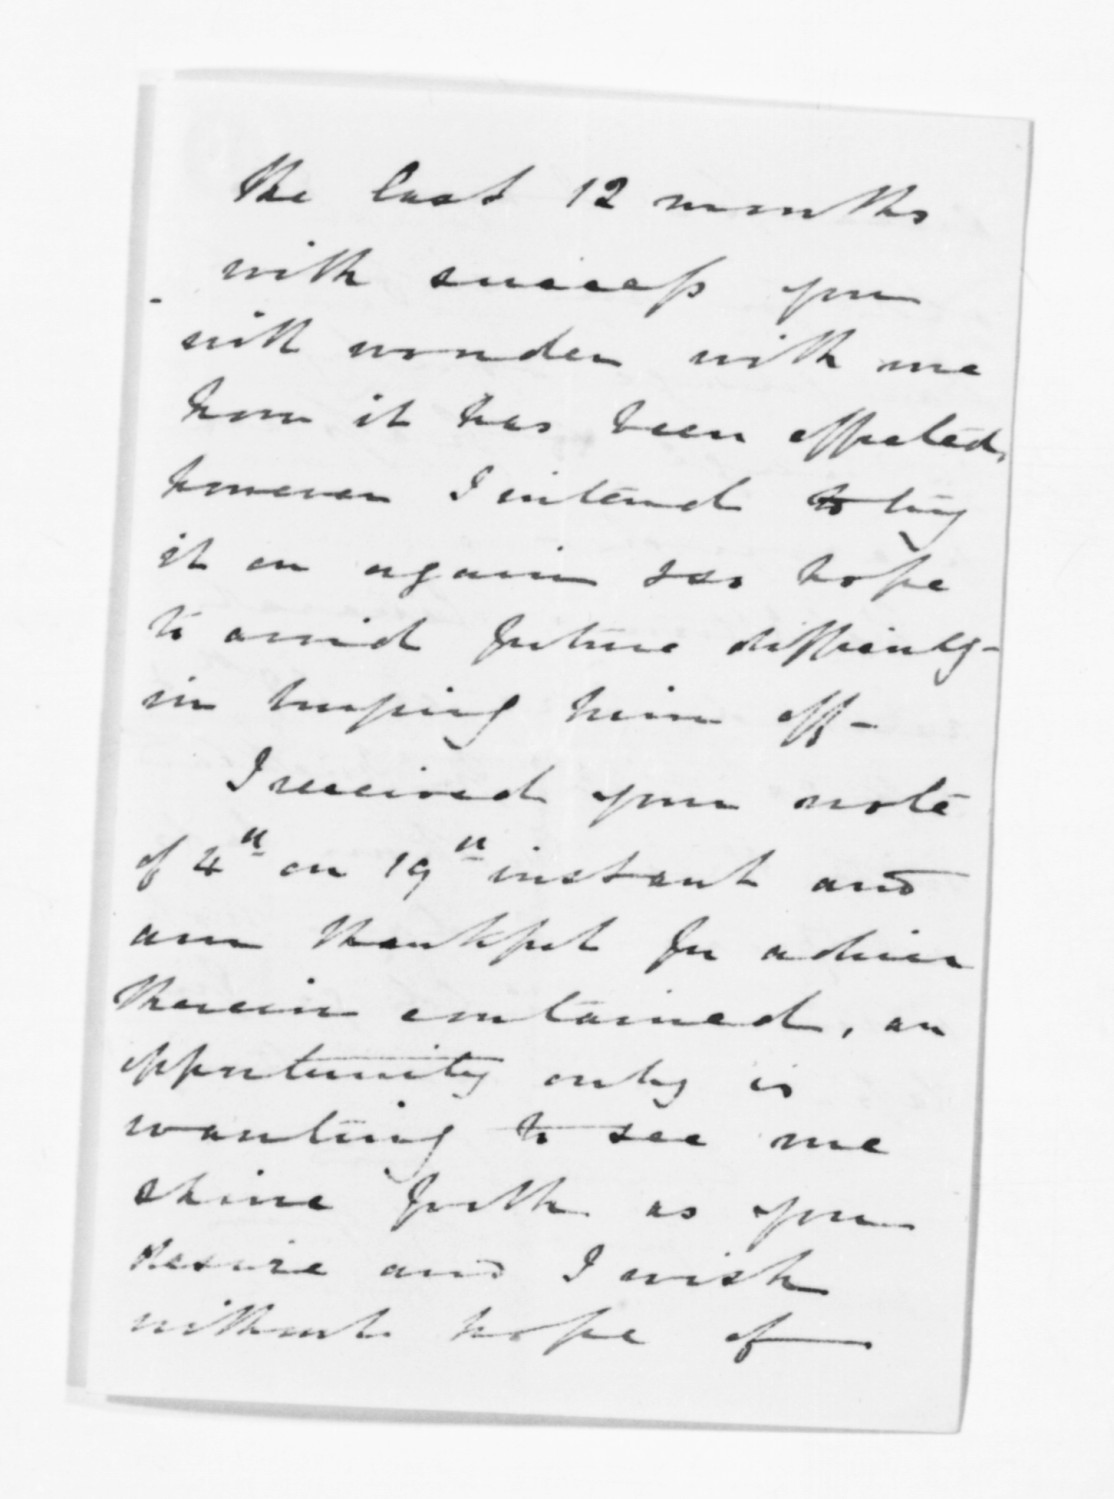 the last 12 months
with success you
will wonder with me
how it has been effected,
however I intend to try
it on again & so hope
to avoid future difficulty -
in keeping him off -
I received your note
of 4th on 19th instant and
am thankful for advice
therein contained, an
opportunity only is
wanting to see me
shine forth as you
desire and I wish
without hope of